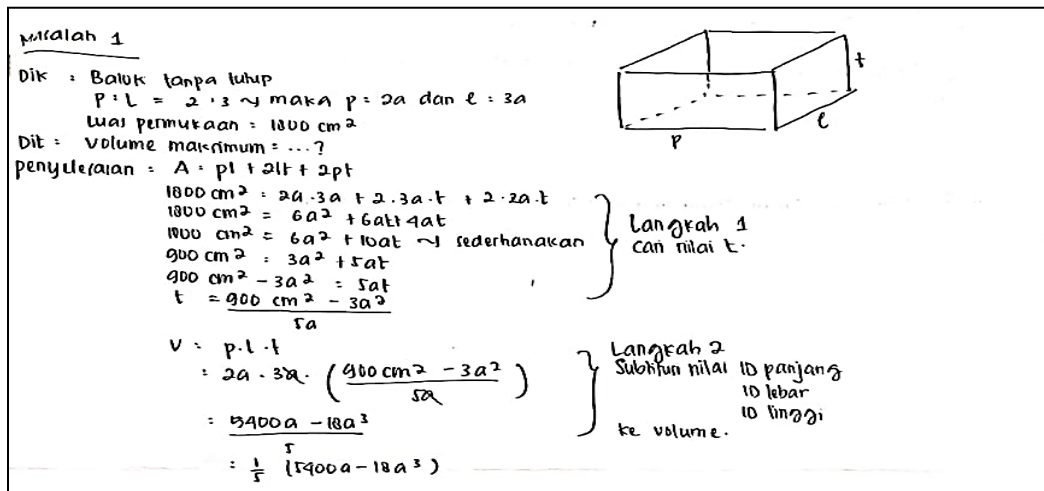 Masalah 1
Dik : Balok tanpa tutup
P : L = 2 : 3 ~> maka p = 2a dan l = 3a
Luas permukaan = 1800 cm²
Dit : Volume maksimum = ...?
penyelesaian = A = pl + 2lt + 2pt
1800 cm² = 2a · 3a + 2 · 3a · t + 2 · 2a · t
1800 cm² = 6a² + 6at + 4at
1800 cm² = 6a² + 10at ~> sederhanakan
900 cm² = 3a² + 5at
900 cm² - 3a² = 5at
t = 900 cm² - 3a²
5a
Langkah 1
cari nilai t.
V = p · l · t
= 2a · 3a · ( 900 cm² - 3a² / 5a )
= 5400a - 18a³
5
= 1/5 (5400a - 18a³)
Langkah 2
nilai panjang
lebar
tinggi
ke volume.
p
l
t